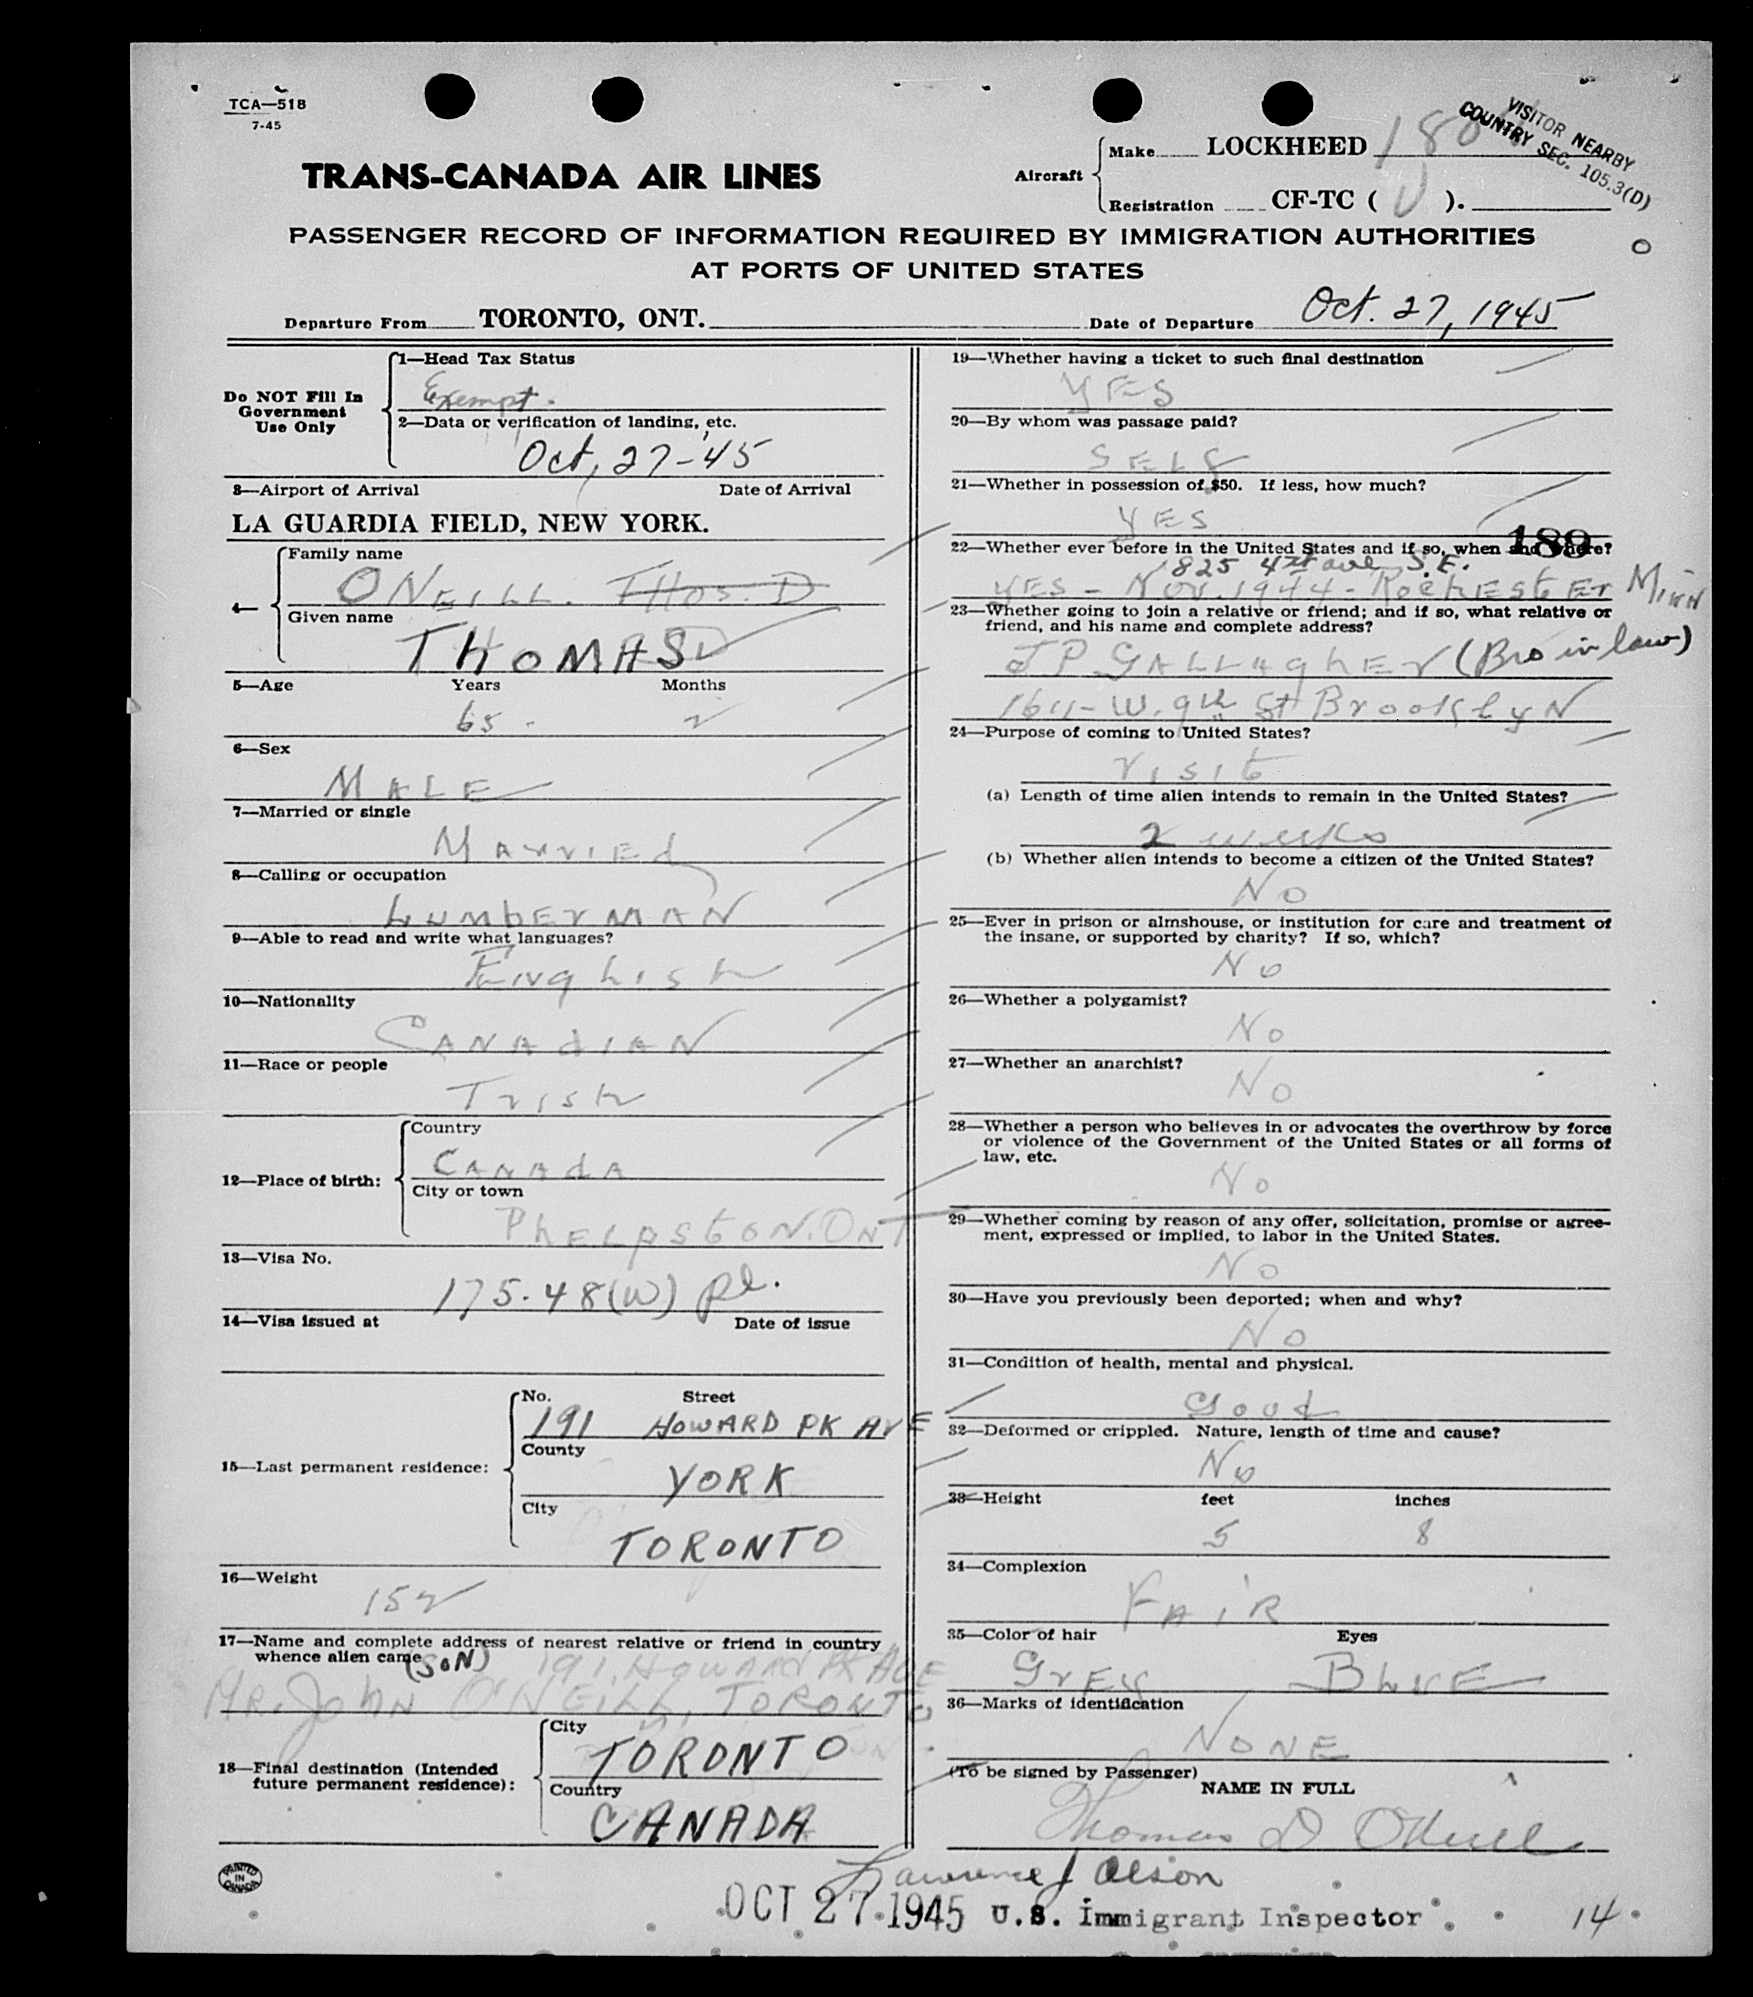 TCA—518
7-45
VISITOR NEARBY
COUNTRY SEC. 105.3(D)
TRANS-CANADA AIR LINES
Aircraft
Make LOCKHEED
Registration CF-TC ( U ).
PASSENGER RECORD OF INFORMATION REQUIRED BY IMMIGRATION AUTHORITIES
AT PORTS OF UNITED STATES
Departure From TORONTO, ONT. Date of Departure Oct. 27, 1945
Do NOT Fill In
Government
Use Only
1—Head Tax Status
Exempt.
2—Data or verification of landing, etc.
Oct, 27-'45
3—Airport of Arrival Date of Arrival
LA GUARDIA FIELD, NEW YORK.
4—
Family name
ONEILL. THOS. D
Given name
THOMAS D
5—Age Years Months
65 - 2
6—Sex
MALE
7—Married or single
MArriEd
8—Calling or occupation
LumbErMAN
9—Able to read and write what languages?
English
10—Nationality
CANAdIAN
11—Race or people
Irish
12—Place of birth:
Country
CANAdA
City or town
PhELpstoN. ONT
13—Visa No.
175.48(W) pl.
14—Visa issued at Date of issue
15—Last permanent residence:
No. Street
191 HOWARD PK AVE
County
YORK
City
TORONTO
16—Weight
152
17—Name and complete address of nearest relative or friend in country
whence alien came
(SON) 191. HOWARD PK AVE
MR. JOHN O'NEILL, TORONTO
18—Final destination (Intended
future permanent residence):
City
TORONTO
Country
CANADA
19—Whether having a ticket to such final destination
YES
20—By whom was passage paid?
SELF
21—Whether in possession of $50. If less, how much?
YES
189
22—Whether ever before in the United States and if so, when and where?
825 4th ave S.E.
YES - Nov. 1944 - RochEstEr Minn
23—Whether going to join a relative or friend; and if so, what relative or
friend, and his name and complete address?
JP GALLAghEr (Bro in law)
1611- W. 9th St BrooklyN
24—Purpose of coming to United States?
Visit
(a) Length of time alien intends to remain in the United States?
2 weeks
(b) Whether alien intends to become a citizen of the United States?
No
25—Ever in prison or almshouse, or institution for care and treatment of
the insane, or supported by charity? If so, which?
No
26—Whether a polygamist?
No
27—Whether an anarchist?
No
28—Whether a person who believes in or advocates the overthrow by force
or violence of the Government of the United States or all forms of
law, etc.
No
29—Whether coming by reason of any offer, solicitation, promise or agree-
ment, expressed or implied, to labor in the United States.
No
30—Have you previously been deported; when and why?
No
31—Condition of health, mental and physical.
Good
32—Deformed or crippled. Nature, length of time and cause?
No
33—Height feet inches
5 8
34—Complexion
FAIR
35—Color of hair Eyes
GrEy BLUE
36—Marks of identification
NONE
(To be signed by Passenger)
NAME IN FULL
Thomas D ONeill
Lawrence J Olson
PRINTED
IN
CANADA
OCT 27 1945 U.S. Immigrant Inspector 14